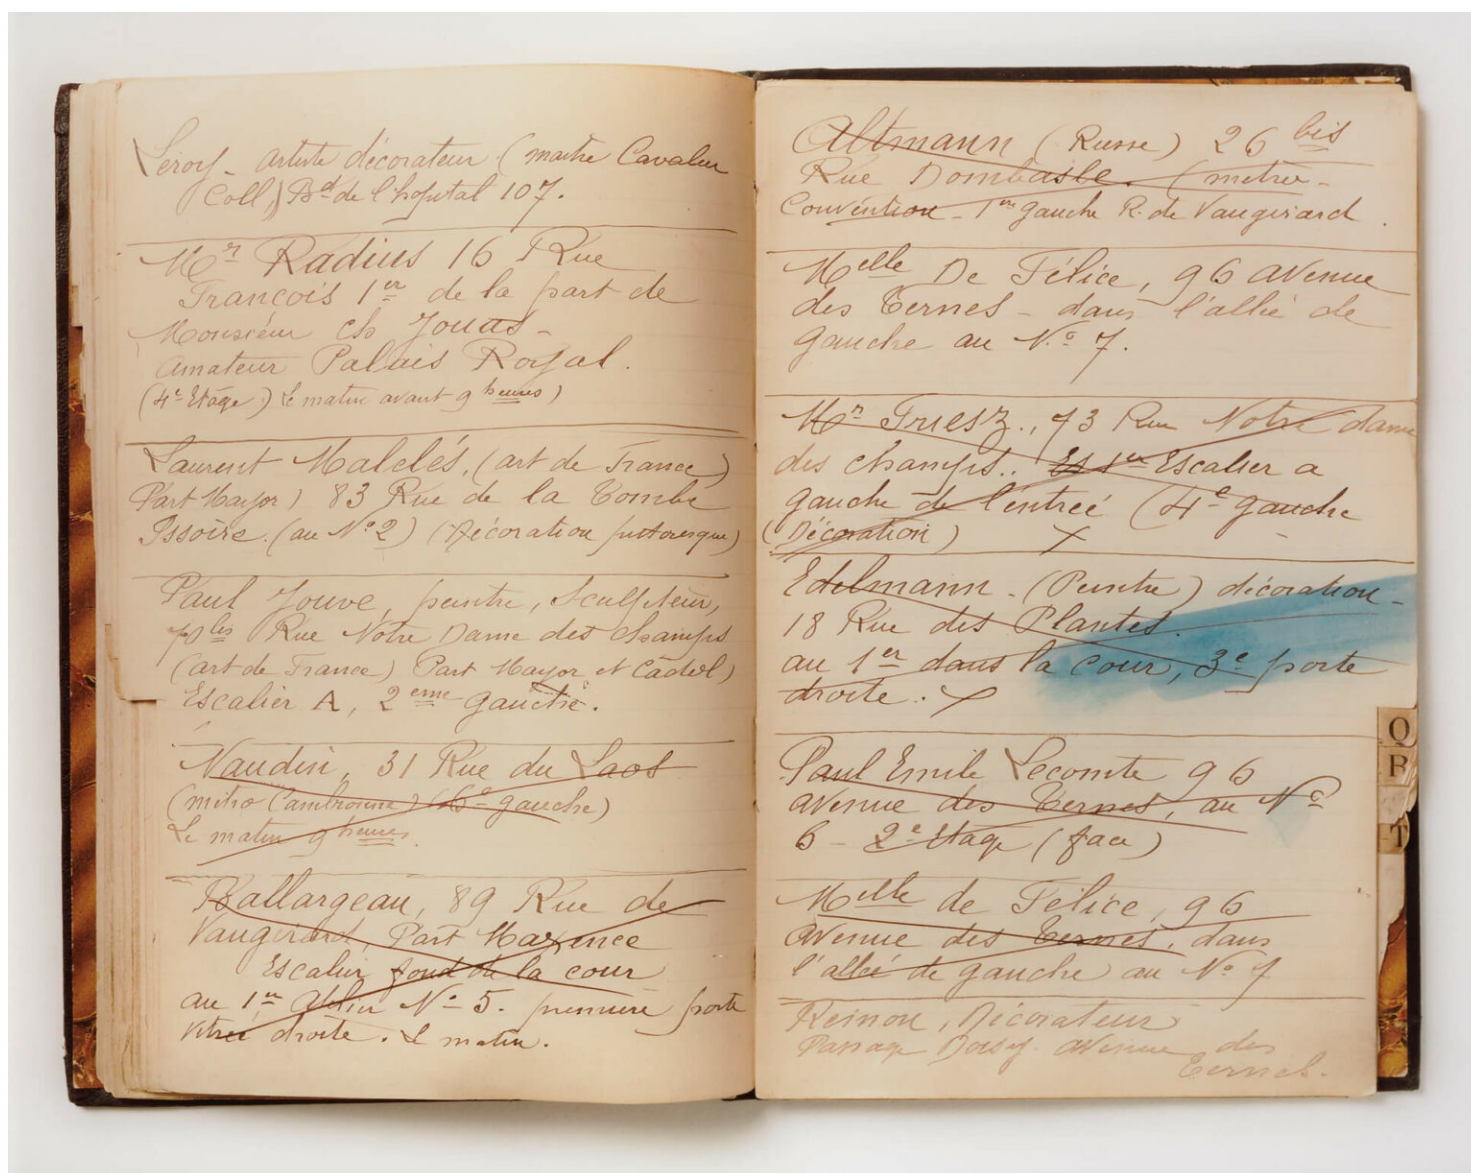 Leroy - artiste décorateur (maitre Cavalier
Coll) Bd de l'hopital 107.
Mr Radius 16 Rue
François 1er de la part de
Monsieur ch Jouas -
amateur Palais Royal.
(4e Etage) Le matin avant 9 heures)
Laurent Malclés, (art de France)
Part Mayor) 83 Rue de la Tombe
Issoire. (au No 2) (Décoration pittoresque)
Paul Jouve, peintre, Sculpteur,
bis Rue Notre Dame des champs
(art de France) Part Mayor et Cadel)
Escalier A, 2eme gauche.
Naudin, 31 Rue du Laos
(métro Cambronne) (6e gauche)
Le matin 9 heures.
Ballargeau, 89 Rue de
Vaugirard, Part Maxence
Escalier fond de la cour
au 1er Atelier No 5. premiere porte
vitreé droite. Le matin.
Altmann (Russe) 26 bis
Rue Dombasle. (metro -
Convention - 1er gauche R. de Vaugirard.
Melle De Félice, 96 avenue
des Ternes - dans l'alleé de
gauche au No 7.
Mr Friesz., 73 Rue Notre dame
des champs.. 1er Escalier a
gauche de l'entreé (4e gauche
(Décoration) X
Edelmann - (Peintre) décoration -
18 Rue des Plantes.
au 1er dans la cour, 3e porte
droite. X
Paul Emile Lecomte 96
avenue des Ternes, au No
6 - 2e Etage (face)
Melle de Félice, 96
avenue des Ternes, dans
l'alleé de gauche au No 7
Reinou, Décorateur
Passage Doisy avenue des
Ternes.
Q
R
T